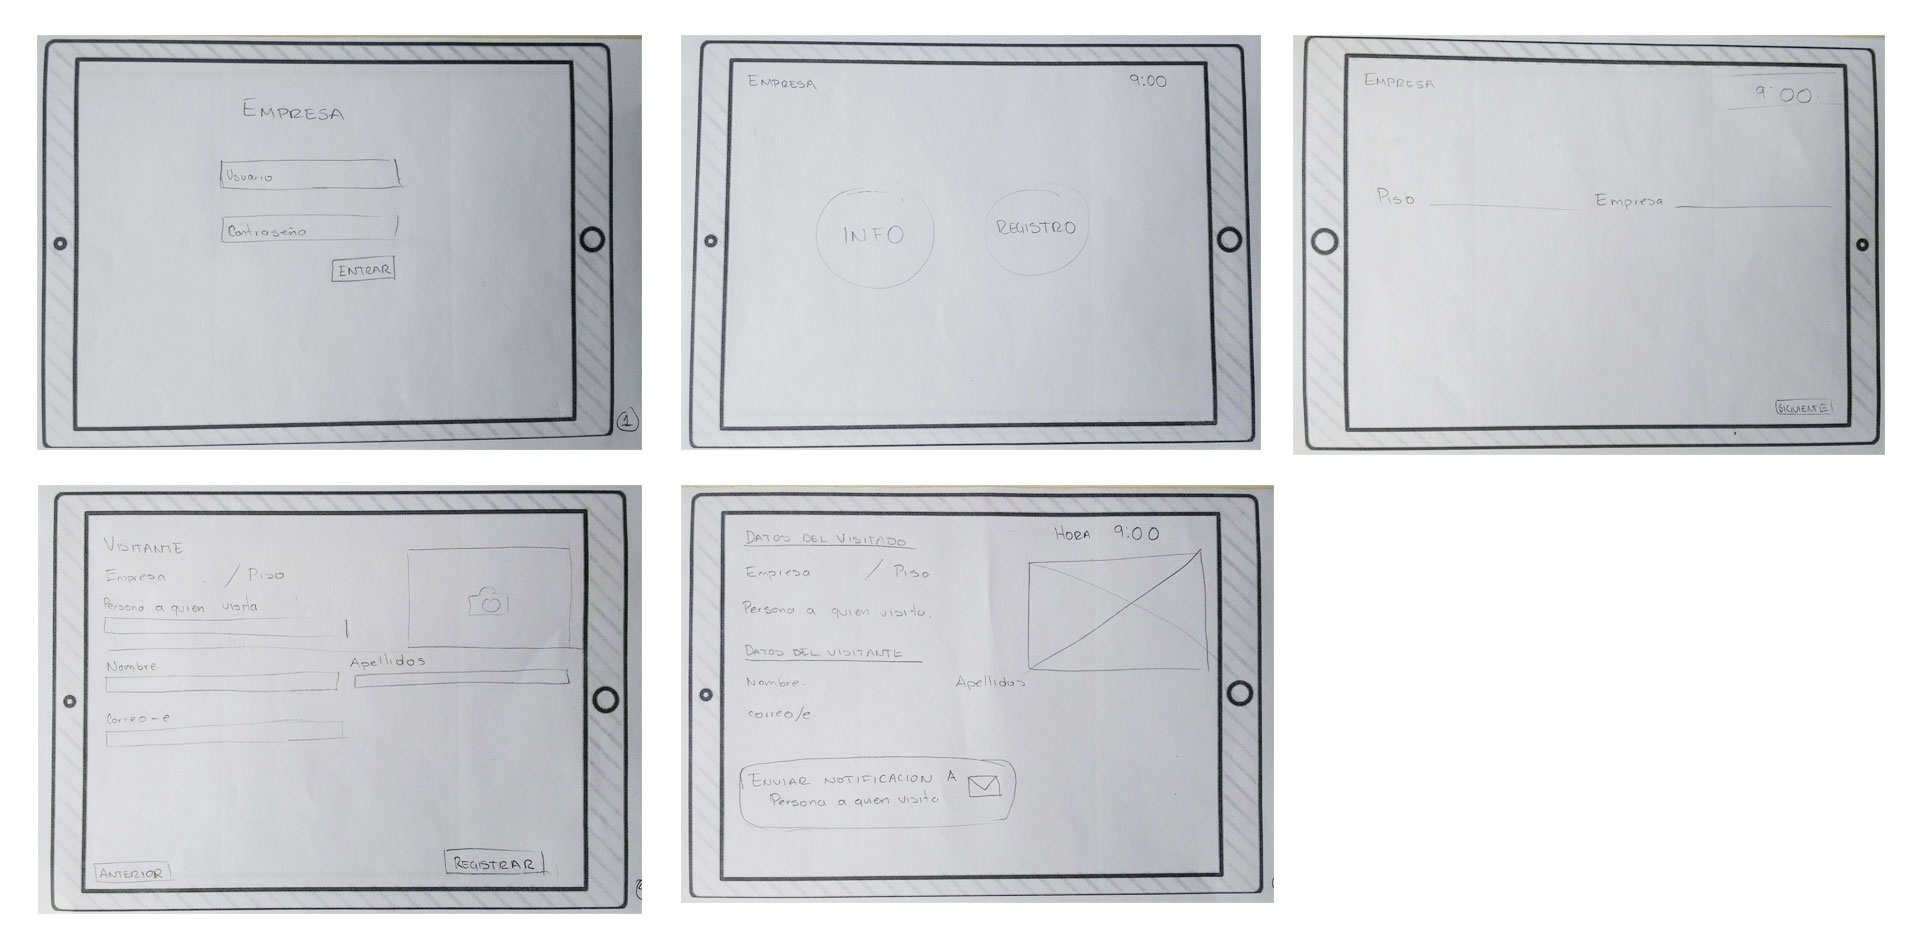 EMPRESA
Usuario
Contraseña
ENTRAR
1
EMPRESA 9:00
INFO REGISTRO
EMPRESA 9:00
Piso Empresa
SIGUIENTE
VISITANTE
Empresa / Piso
Persona a quien visita
Nombre Apellidos
Correo-e
ANTERIOR REGISTRAR
DATOS DEL VISITADO HORA 9:00
Empresa / Piso
Persona a quien visita.
DATOS DEL VISITANTE
Nombre. Apellidos
correo/e
ENVIAR NOTIFICACION A
Persona a quien visita